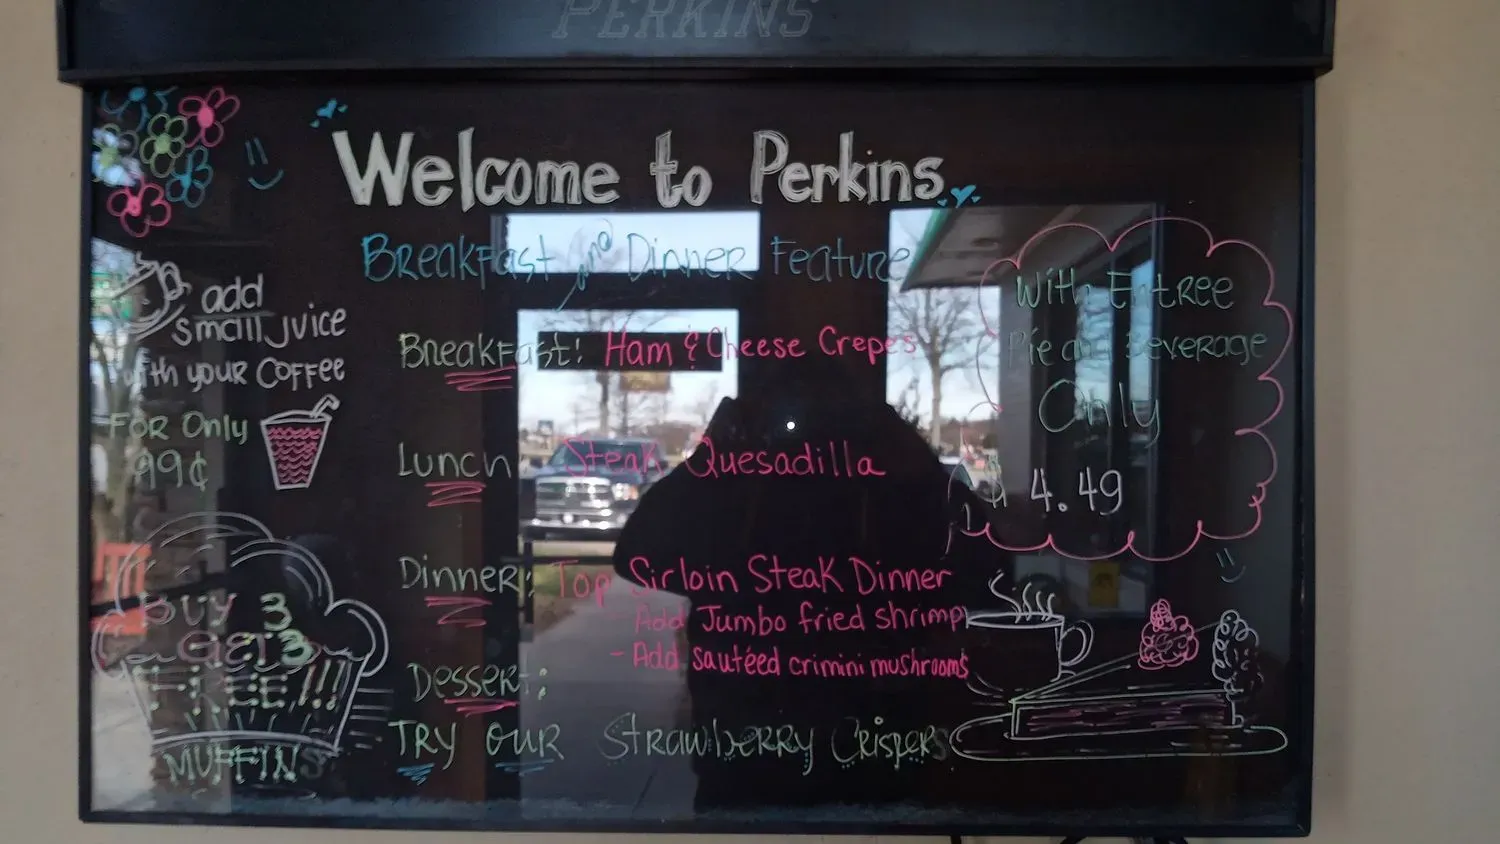 PERKINS
Welcome to Perkins
Breakfast and Dinner Feature
add
small juice
with your Coffee
FOR Only
99¢
BUY 3
GET 3
FREE!!!
MUFFINS
Breakfast: Ham & Cheese Crepes
Lunch Steak Quesadilla
Dinner: Top Sirloin Steak Dinner
- Add Jumbo fried shrimp
- Add sautéed crimini mushrooms
Dessert:
TRY OUR Strawberry Crispers
With Entree
Pie and Beverage
Only
$ 4.49